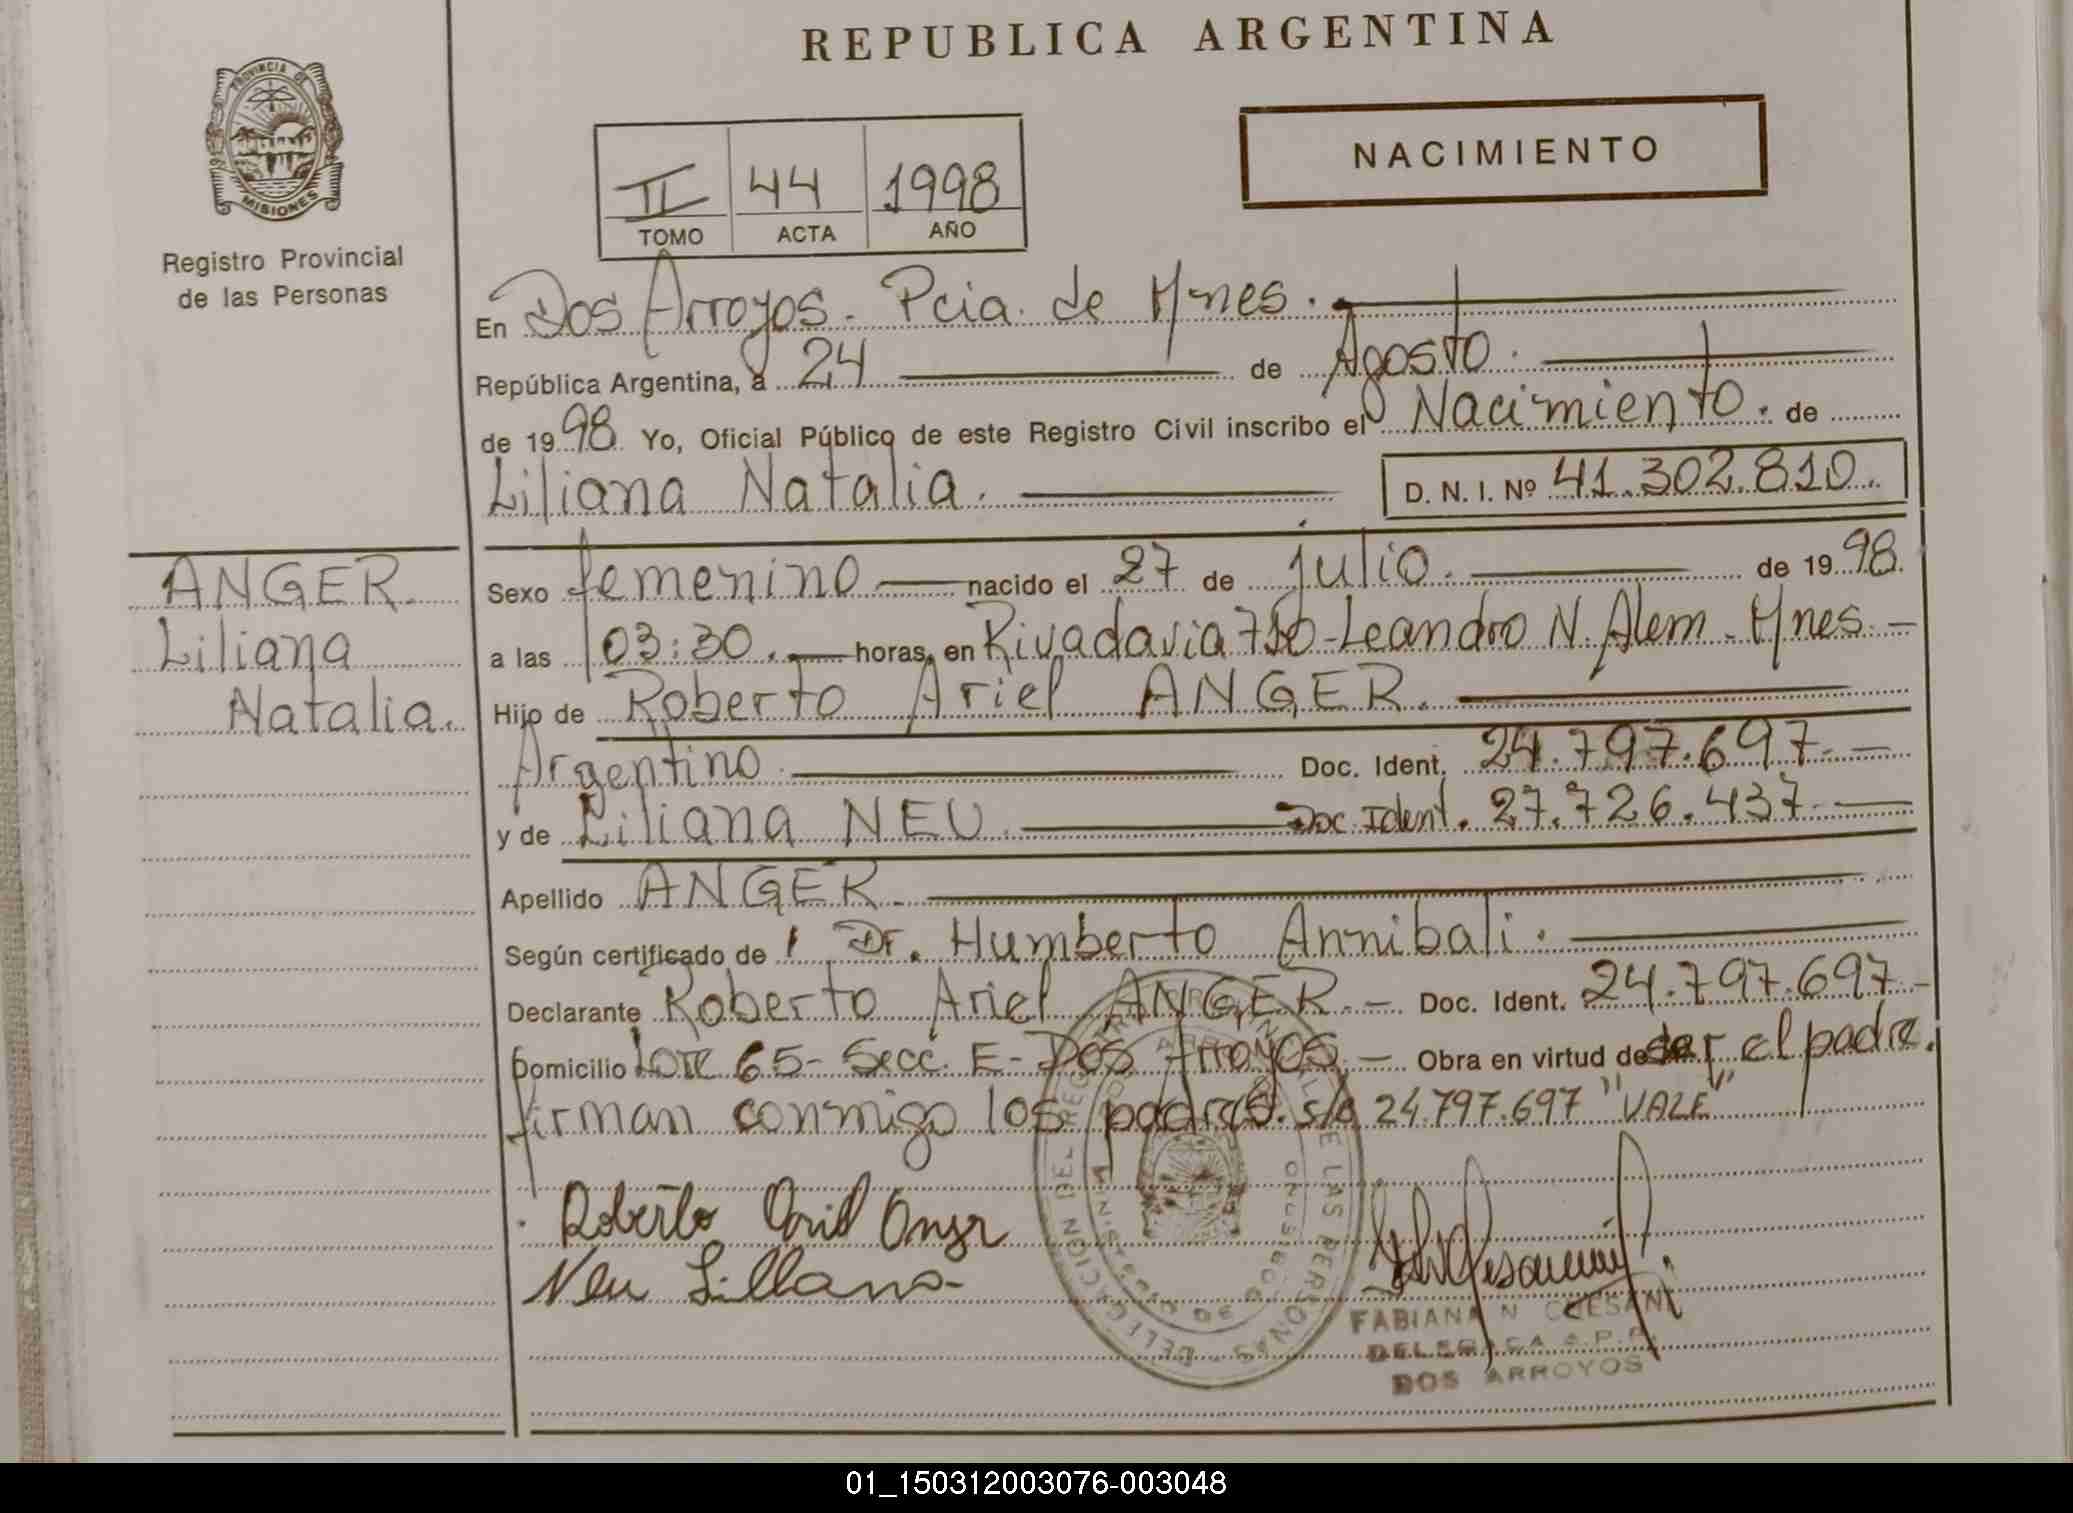 REPUBLICA ARGENTINA
PROVINCIA DE MISIONES
Registro Provincial
de las Personas
NACIMIENTO
II 44 1998
TOMO ACTA AÑO
En Dos Arroyos. Pcia. de Mnes.
República Argentina, a 24 de Agosto.
de 1998 Yo, Oficial Público de este Registro Civil inscribo el Nacimiento. de
Liliana Natalia. D. N. I. Nº 41.302.810.
ANGER.
Liliana
Natalia.
Sexo femenino nacido el 27 de julio. de 1998.
a las 03:30. horas, en Rivadavia - Leandro N. Alem - Mnes. -
Hijo de Roberto Ariel ANGER.
Argentino Doc. Ident. 24.797.697.-
y de Liliana NEU Doc. Ident. 27.726.437.-
Apellido ANGER.
Según certificado de Dr. Humberto Annibali.
Declarante Roberto Ariel ANGER.- Doc. Ident. 24.797.697-
Domicilio Lote 65- Secc. E- Dos Arroyos.- Obra en virtud de ser el padre.
firman conmigo los padres. s/r 24.797.697 "VALE"
Roberto Ariel Anger
Neu Liliana
DELEGACION DEL REGISTRO PROVINCIAL DE LAS PERSONAS
FABIANA N
DELEGADA R.P.P.
DOS ARROYOS
01_150312003076-003048